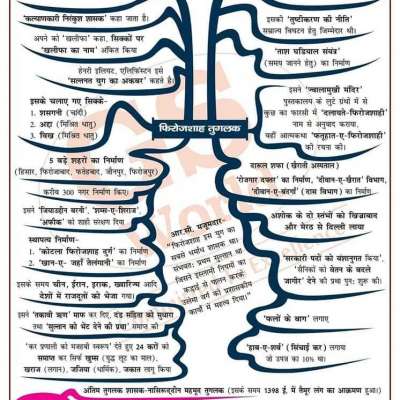 'कल्याणकारी निरंकुश शासक' कहा जाता है।
अपने को 'खलीफा' कहा, सिक्कों पर
'खलीफा का नाम' अंकित किया
हेनरी इलियट, एलिफिंस्टन इसे
"सल्तनत युग का अकबर" कहते है।
इसके चलाए गए सिक्के-
1. शसगनी (चांदी)
2. अद्दा (मिश्रित धातु)
3. बिख (मिश्रित धातु)
फिरोजशाह तुगलक
5 बड़े शहरों का निर्माण
(हिसार, फिरोजाबाद, फतेहाबाद, जौनपुर, फिरोजपुर)
करीब 300 नगर निर्माण किए।
इसने 'जियाउद्दीन बरनी', 'शम्स-ए-शिराज
'अफीक' को शाही संरक्षण दिया
स्थापत्य निर्माण-
1. 'कोटला फिरोजशाह दुर्ग' का निर्माण
2. 'खान-ए- जहाँ तेलंगानी' का निर्माण
इसके समय चीन, ईरान, इराक, ख्वारिज्म आदि
देशों में राजदूतों को भेजा गया।
इसने 'तकावी ऋण' माफ कर दिए, दंड संहिता को सुधारा
तथा 'सुल्तान को भेंट देने की प्रथा' समाप्त की
'कर प्रणाली को मजहबी स्वरूप' देते हुए 24 करों को
समाप्त कर सिर्फ खुम्स (युद्ध लूट का माल),
खराज (लगान), जजिया (धार्मिक), जकात लागू किया
इसकी 'तुष्टीकरण की नीति'
सम्राज्य विघटन हेतु जिम्मेदार थी।
'ताश घड़ियाल संयंत्र'
(समय जानने हेतु) का निर्माण
इसने 'ज्वालामुखी मंदिर'
पुस्तकालय के लुटे ग्रंथों में से
कुछ का फारसी में 'दलायते-फिरोजशाही'
नाम से अनुवाद कराया,
यहीं आत्मकथा 'फतूहात-ए-फिरोजशाही'
की रचना की।
दारूल शफा (खैराती अस्पताल)
'रोजगार दफ्तर' का निर्माण, 'दीवान-ए-खैरात' विभाग,
'दीवान-ए-बंदगाँ' (दास विभाग) का निर्माण..
आर.सी. मजूमदार-
"फिरोजशाह इस युग का
सबसे महान धर्मांध था
संभवत: प्रथम सुल्तान था
जिसने इस्लामी नियमों का
कड़ाई से पालन करके
उलेमा वर्ग को प्रशासकीय
कार्यों में महत्व दिया।'
अशोक के दो स्तंभों को खिज्राबाद
और मेरठ से दिल्ली लाया
'सरकारी पदों को वंशानुगत किया',
'सैनिकों को वेतन के बदले
जागीर' देने की प्रथा पुन: शुरू की।
'फलों के बाग' लगाए
'हाब-ए-शर्ब' (सिंचाई कर) लगाया
जो उपज का 10% था।
अंतिम तुगलक शासक-नासिरूद्दीन महमूद तुगलक (इसके समय 1398 ई. में तैमूर लंग का आक्रमण हुआ।)